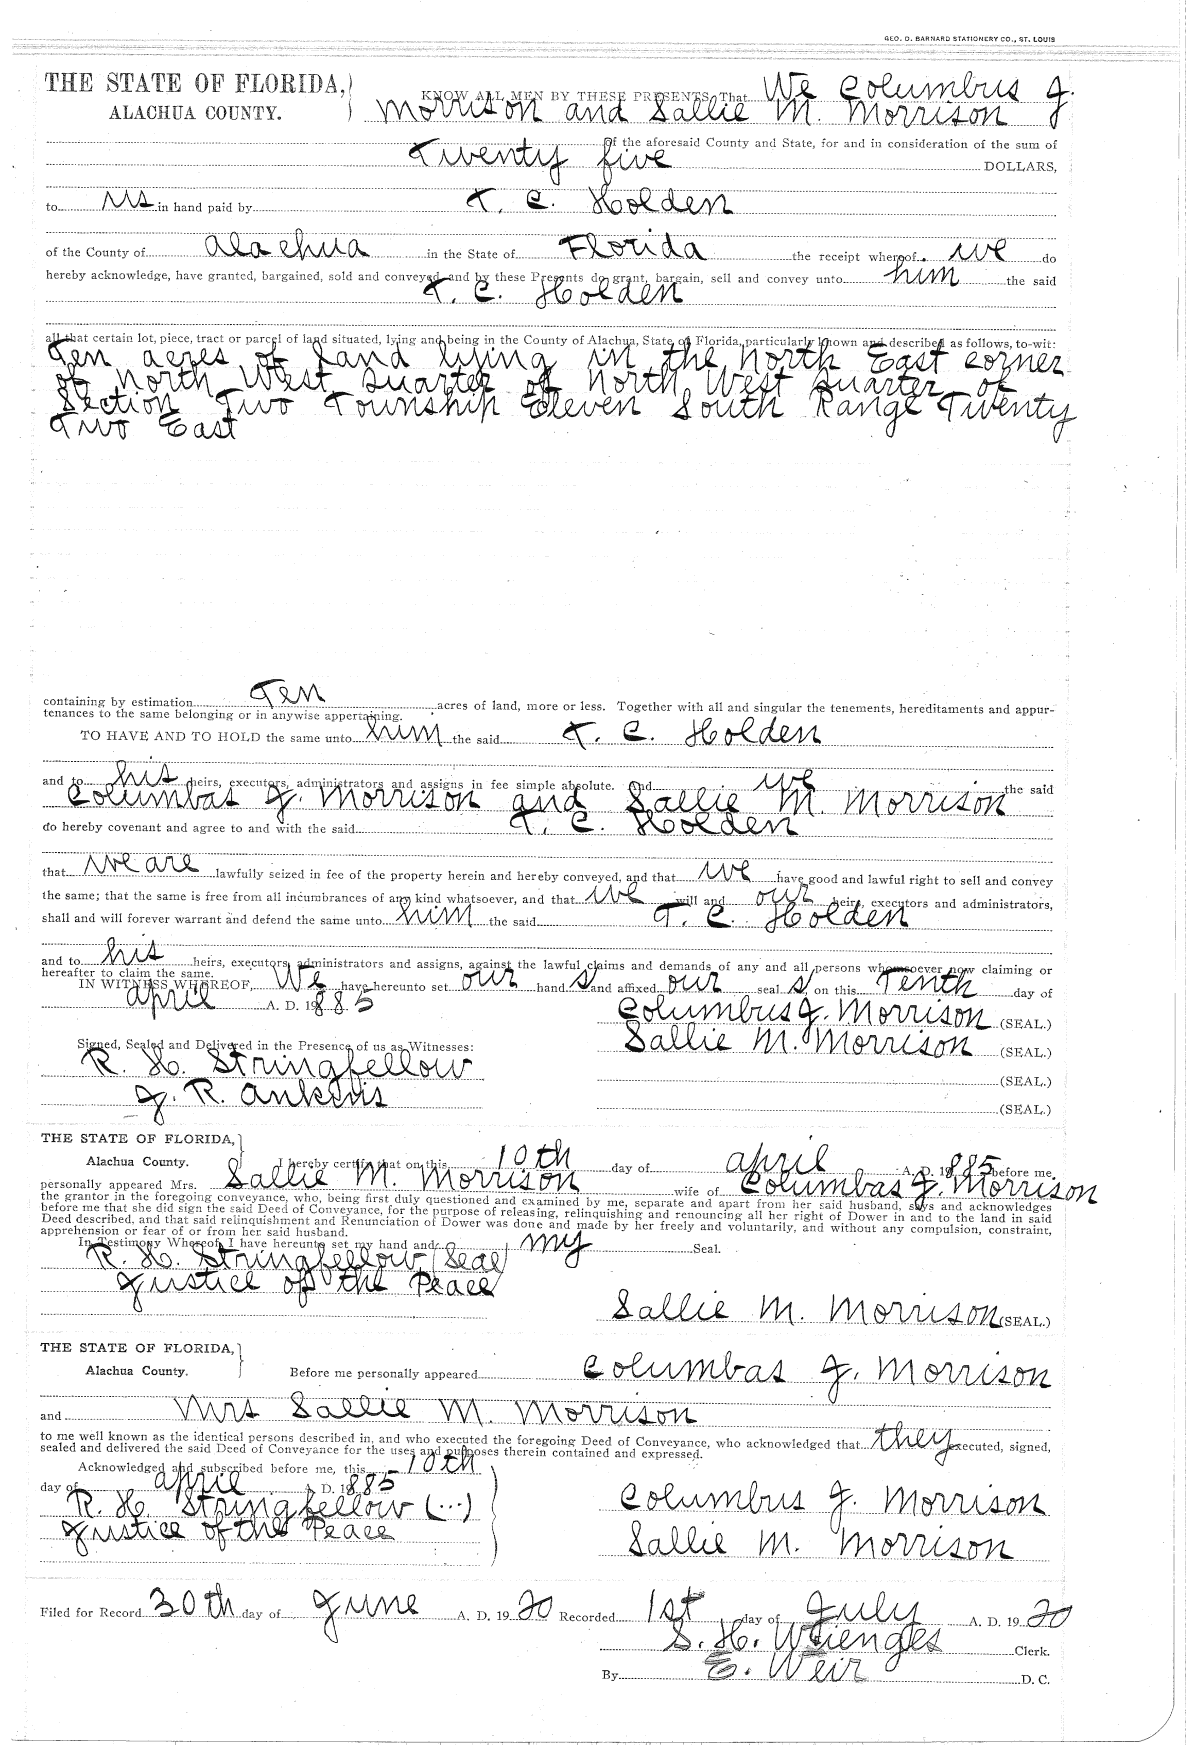 GEO. D. BARNARD STATIONERY CO., ST. LOUIS
THE STATE OF FLORIDA,
ALACHUA COUNTY.
KNOW ALL MEN BY THESE PRESENTS, That We Columbus J.
Morrison and Sallie M. Morrison
of the aforesaid County and State, for and in consideration of the sum of
Twenty five DOLLARS,
to us in hand paid by T. C. Holden
of the County of Alachua in the State of Florida the receipt whereof we do
hereby acknowledge, have granted, bargained, sold and conveyed and by these Presents do grant, bargain, sell and convey unto him the said
T. C. Holden
all that certain lot, piece, tract or parcel of land situated, lying and being in the County of Alachua, State of Florida, particularly known and described as follows, to-wit:
Ten acres of land lying in the North East corner
of North West quarter of North West quarter of
Section Two Township Eleven South Range Twenty
Two East
containing by estimation Ten acres of land, more or less. Together with all and singular the tenements, hereditaments and appur-
tenances to the same belonging or in anywise appertaining.
TO HAVE AND TO HOLD the same unto him the said T. C. Holden
and to his heirs, executors, administrators and assigns in fee simple absolute. And we the said
Columbas J. Morrison and Sallie M. Morrison
do hereby covenant and agree to and with the said T. C. Holden
that we are lawfully seized in fee of the property herein and hereby conveyed, and that we have good and lawful right to sell and convey
the same; that the same is free from all incumbrances of any kind whatsoever, and that we will and our heirs, executors and administrators,
shall and will forever warrant and defend the same unto him the said T. C. Holden
and to his heirs, executors, administrators and assigns, against the lawful claims and demands of any and all persons whomsoever now claiming or
hereafter to claim the same.
IN WITNESS WHEREOF, We have hereunto set our hand s and affixed our seal s, on this Tenth day of
April A. D. 1885
Columbus J. Morrison (SEAL.)
Sallie M. Morrison (SEAL.)
Signed, Sealed and Delivered in the Presence of us as Witnesses:
R. H. Stringfellow (SEAL.)
J. R. (SEAL.)
THE STATE OF FLORIDA,
Alachua County. I hereby certify that on this 10th day of April A. D. 1885 before me
personally appeared Mrs. Sallie M. Morrison wife of Columbas J. Morrison
the grantor in the foregoing conveyance, who, being first duly questioned and examined by me, separate and apart from her said husband, says and acknowledges
before me that she did sign the said Deed of Conveyance, for the purpose of releasing, relinquishing and renouncing all her right of Dower in and to the land in said
Deed described, and that said relinquishment and Renunciation of Dower was done and made by her freely and voluntarily, and without any compulsion, constraint,
apprehension or fear of or from her said husband.
In Testimony Whereof, I have hereunto set my hand and my Seal.
R. H. Stringfellow (Seal)
Justice of the Peace
Sallie M. Morrison (SEAL.)
THE STATE OF FLORIDA,
Alachua County. Before me personally appeared Columbas J. Morrison
and Mrs Sallie M. Morrison
to me well known as the identical persons described in, and who executed the foregoing Deed of Conveyance, who acknowledged that they executed, signed,
sealed and delivered the said Deed of Conveyance for the uses and purposes therein contained and expressed.
Acknowledged and subscribed before me, this 10th
day of April A. D. 1885
R. H. Stringfellow (...) Columbus J. Morrison
Justice of the Peace Sallie M. Morrison
Filed for Record 30th day of June A. D. 1920 Recorded 1st day of July A. D. 1920
S. H. Wienges Clerk.
By E. Weir D. C.